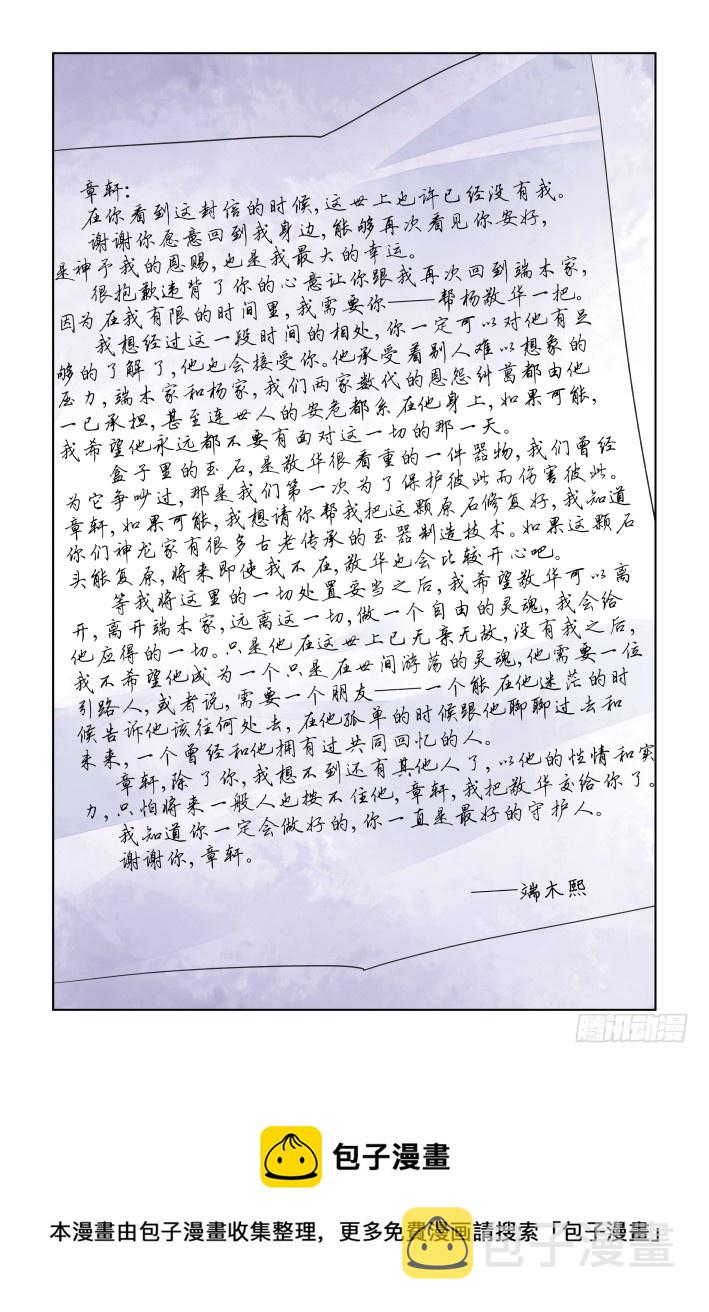 章轩:
在你看到这封信的时候,这世上也许已经没有我。
谢谢你愿意回到我身边,能够再次看见你安好,
是神予我的恩赐,也是我最大的幸运。
很抱歉违背了你的心意让你跟我再次回到端木家,
因为在我有限的时间里,我需要你——帮杨敬华一把。
我想经过这一段时间的相处,你一定可以对他有足
够的了解了,他也会接受你。他承受着别人难以想象的
压力,端木家和杨家,我们两家数代的恩怨纠葛都由他
一己承担,甚至连世人的安危都系在他身上,如果可能,
我希望他永远都不要有面对这一切的那一天。
盒子里的玉石,是敬华很看重的一件器物,我们曾经
为它争吵过,那是我们第一次为了保护彼此而伤害彼此。
章轩,如果可能,我想请你帮我把这颗原石修复好,我知道
你们神龙家有很多古老传承的玉器制造技术。如果这颗石
头能复原,将来即使我不在,敬华也会比较开心吧。
等我将这里的一切处置妥当之后,我希望敬华可以离
开,离开端木家,远离这一切,做一个自由的灵魂,我会给
他应得的一切。只是他在这世上已无亲无故,没有我之后,
我不希望他成为一个只是在世间游荡的灵魂,他需要一位
引路人,或者说,需要一个朋友——一个能在他迷茫的时
候告诉他该往何处去,在他孤单的时候跟他聊聊过去和
未来,一个曾经和他拥有过共同回忆的人。
章轩,除了你,我想不到还有其他人了,以他的性情和实
力,只怕将来一般人也按不住他,章轩,我把敬华交给你了。
我知道你一定会做好的,你一直是最好的守护人。
谢谢你,章轩。
——端木熙
腾讯动漫
包子漫畫
本漫畫由包子漫畫收集整理，更多免費漫画請搜索「包子漫畫」
包子漫畫